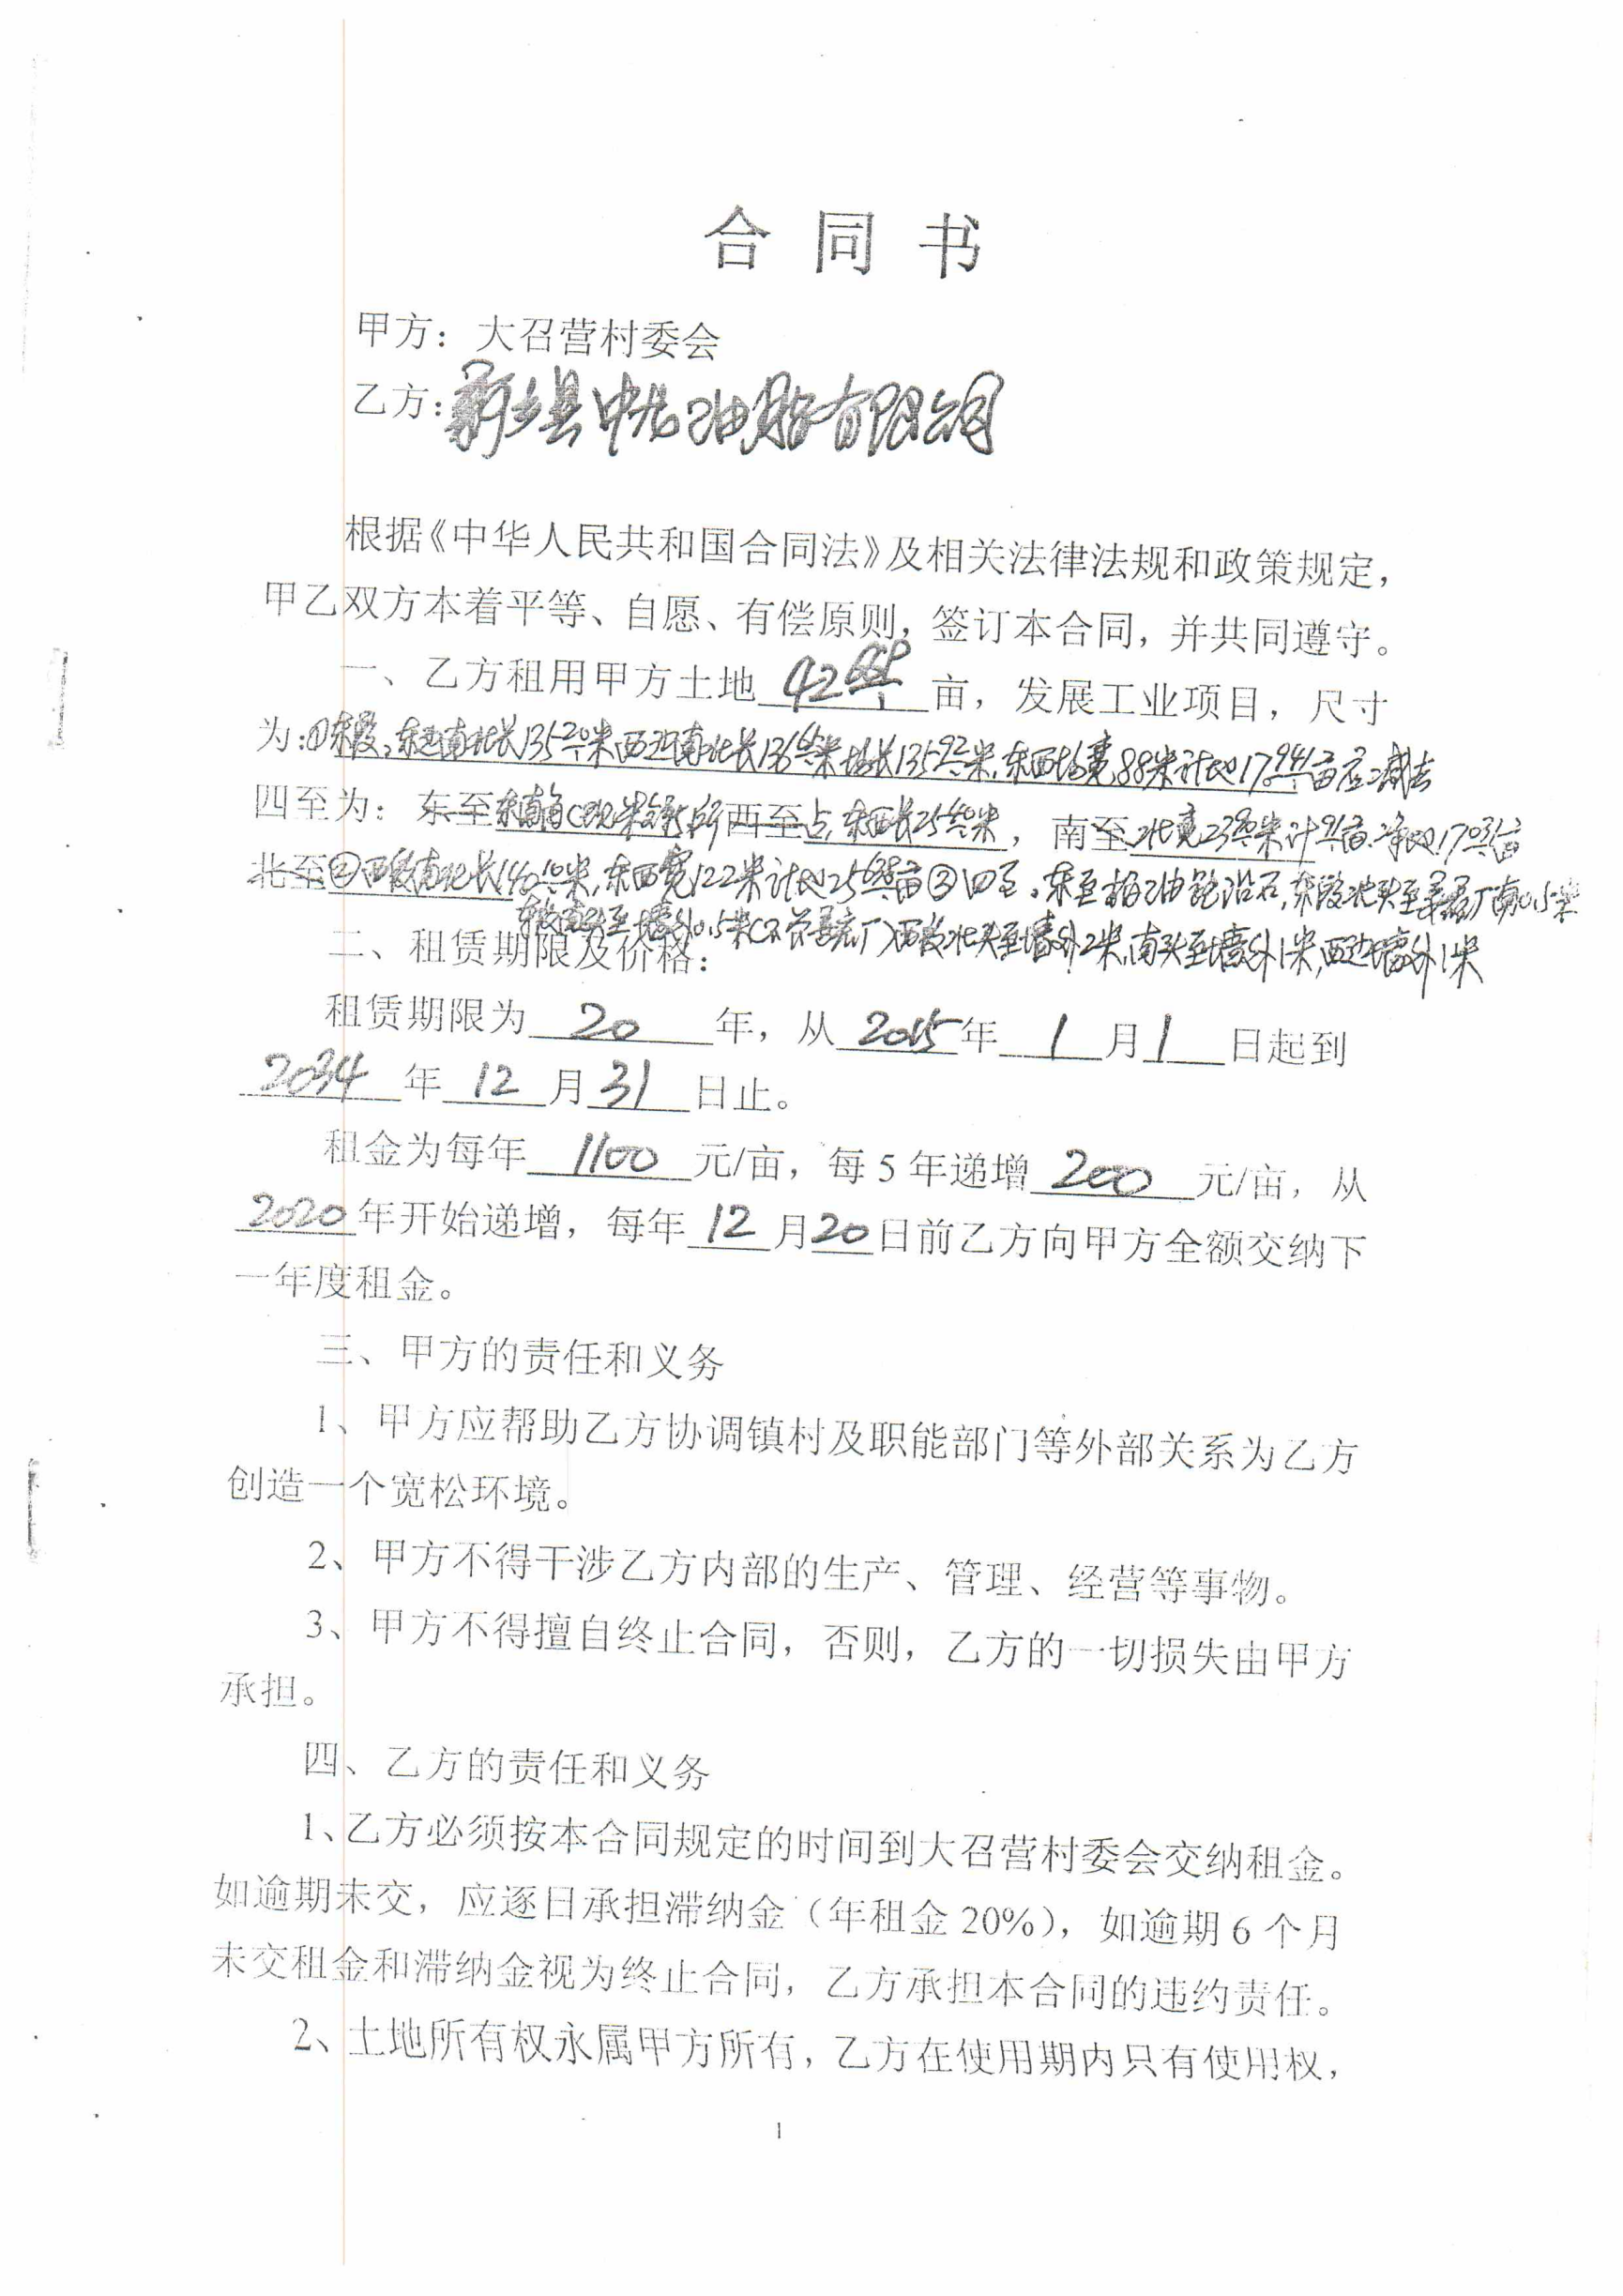 合 同 书
甲方：大召营村委会
乙方：新乡县中龙油脂有限公司
根据《中华人民共和国合同法》及相关法律法规和政策规定，
甲乙双方本着平等、自愿、有偿原则，签订本合同，并共同遵守。
一、乙方租用甲方土地 42 亩，发展工业项目，尺寸
为：①东段，东边南北长135.20米西边南北长136.65米均长135.92米，东西均宽88米计地17.941亩应减去
四至为：东至东南角 西至点，东西长25.40米，南至北宽23米计.91亩.净地17.031亩
北至②西段南北长140.10米，东西宽122米计地25.638亩③四至：东至 路沿石，东段北头至 厂南0.5米
东段南头至墙外0.5米 西段北头至墙外2米，南头至墙外1米，西边墙外1米
二、租赁期限及价格：
租赁期限为 20 年，从 2015 年 1 月 1 日起到
2034 年 12 月 31 日止。
租金为每年 1100 元/亩，每 5 年递增 200 元/亩，从
2020 年开始递增，每年 12 月 20 日前乙方向甲方全额交纳下
一年度租金。
三、甲方的责任和义务
1、甲方应帮助乙方协调镇村及职能部门等外部关系为乙方
创造一个宽松环境。
2、甲方不得干涉乙方内部的生产、管理、经营等事物。
3、甲方不得擅自终止合同，否则，乙方的一切损失由甲方
承担。
四、乙方的责任和义务
1、乙方必须按本合同规定的时间到大召营村委会交纳租金。
如逾期未交，应逐日承担滞纳金（年租金 20%），如逾期 6 个月
未交租金和滞纳金视为终止合同，乙方承担本合同的违约责任。
2、土地所有权永属甲方所有，乙方在使用期内只有使用权，
1